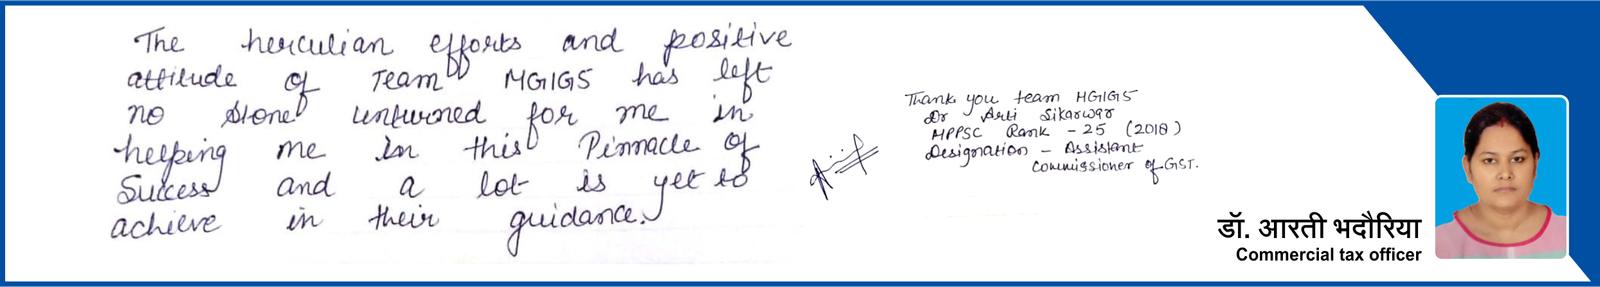 The herculian efforts and positive
attitude of Team MGIGS has left
no stone unturned for me in
helping me in this Pinnacle of
Success and a lot is yet to
achieve in their guidance.
Thank you team MGIGS
Dr Arti Sikarwar
MPPSC Rank - 25 (2018)
Designation - Assistant
Commissioner of GST.
डॉ. आरती भदौरिया
Commercial tax officer